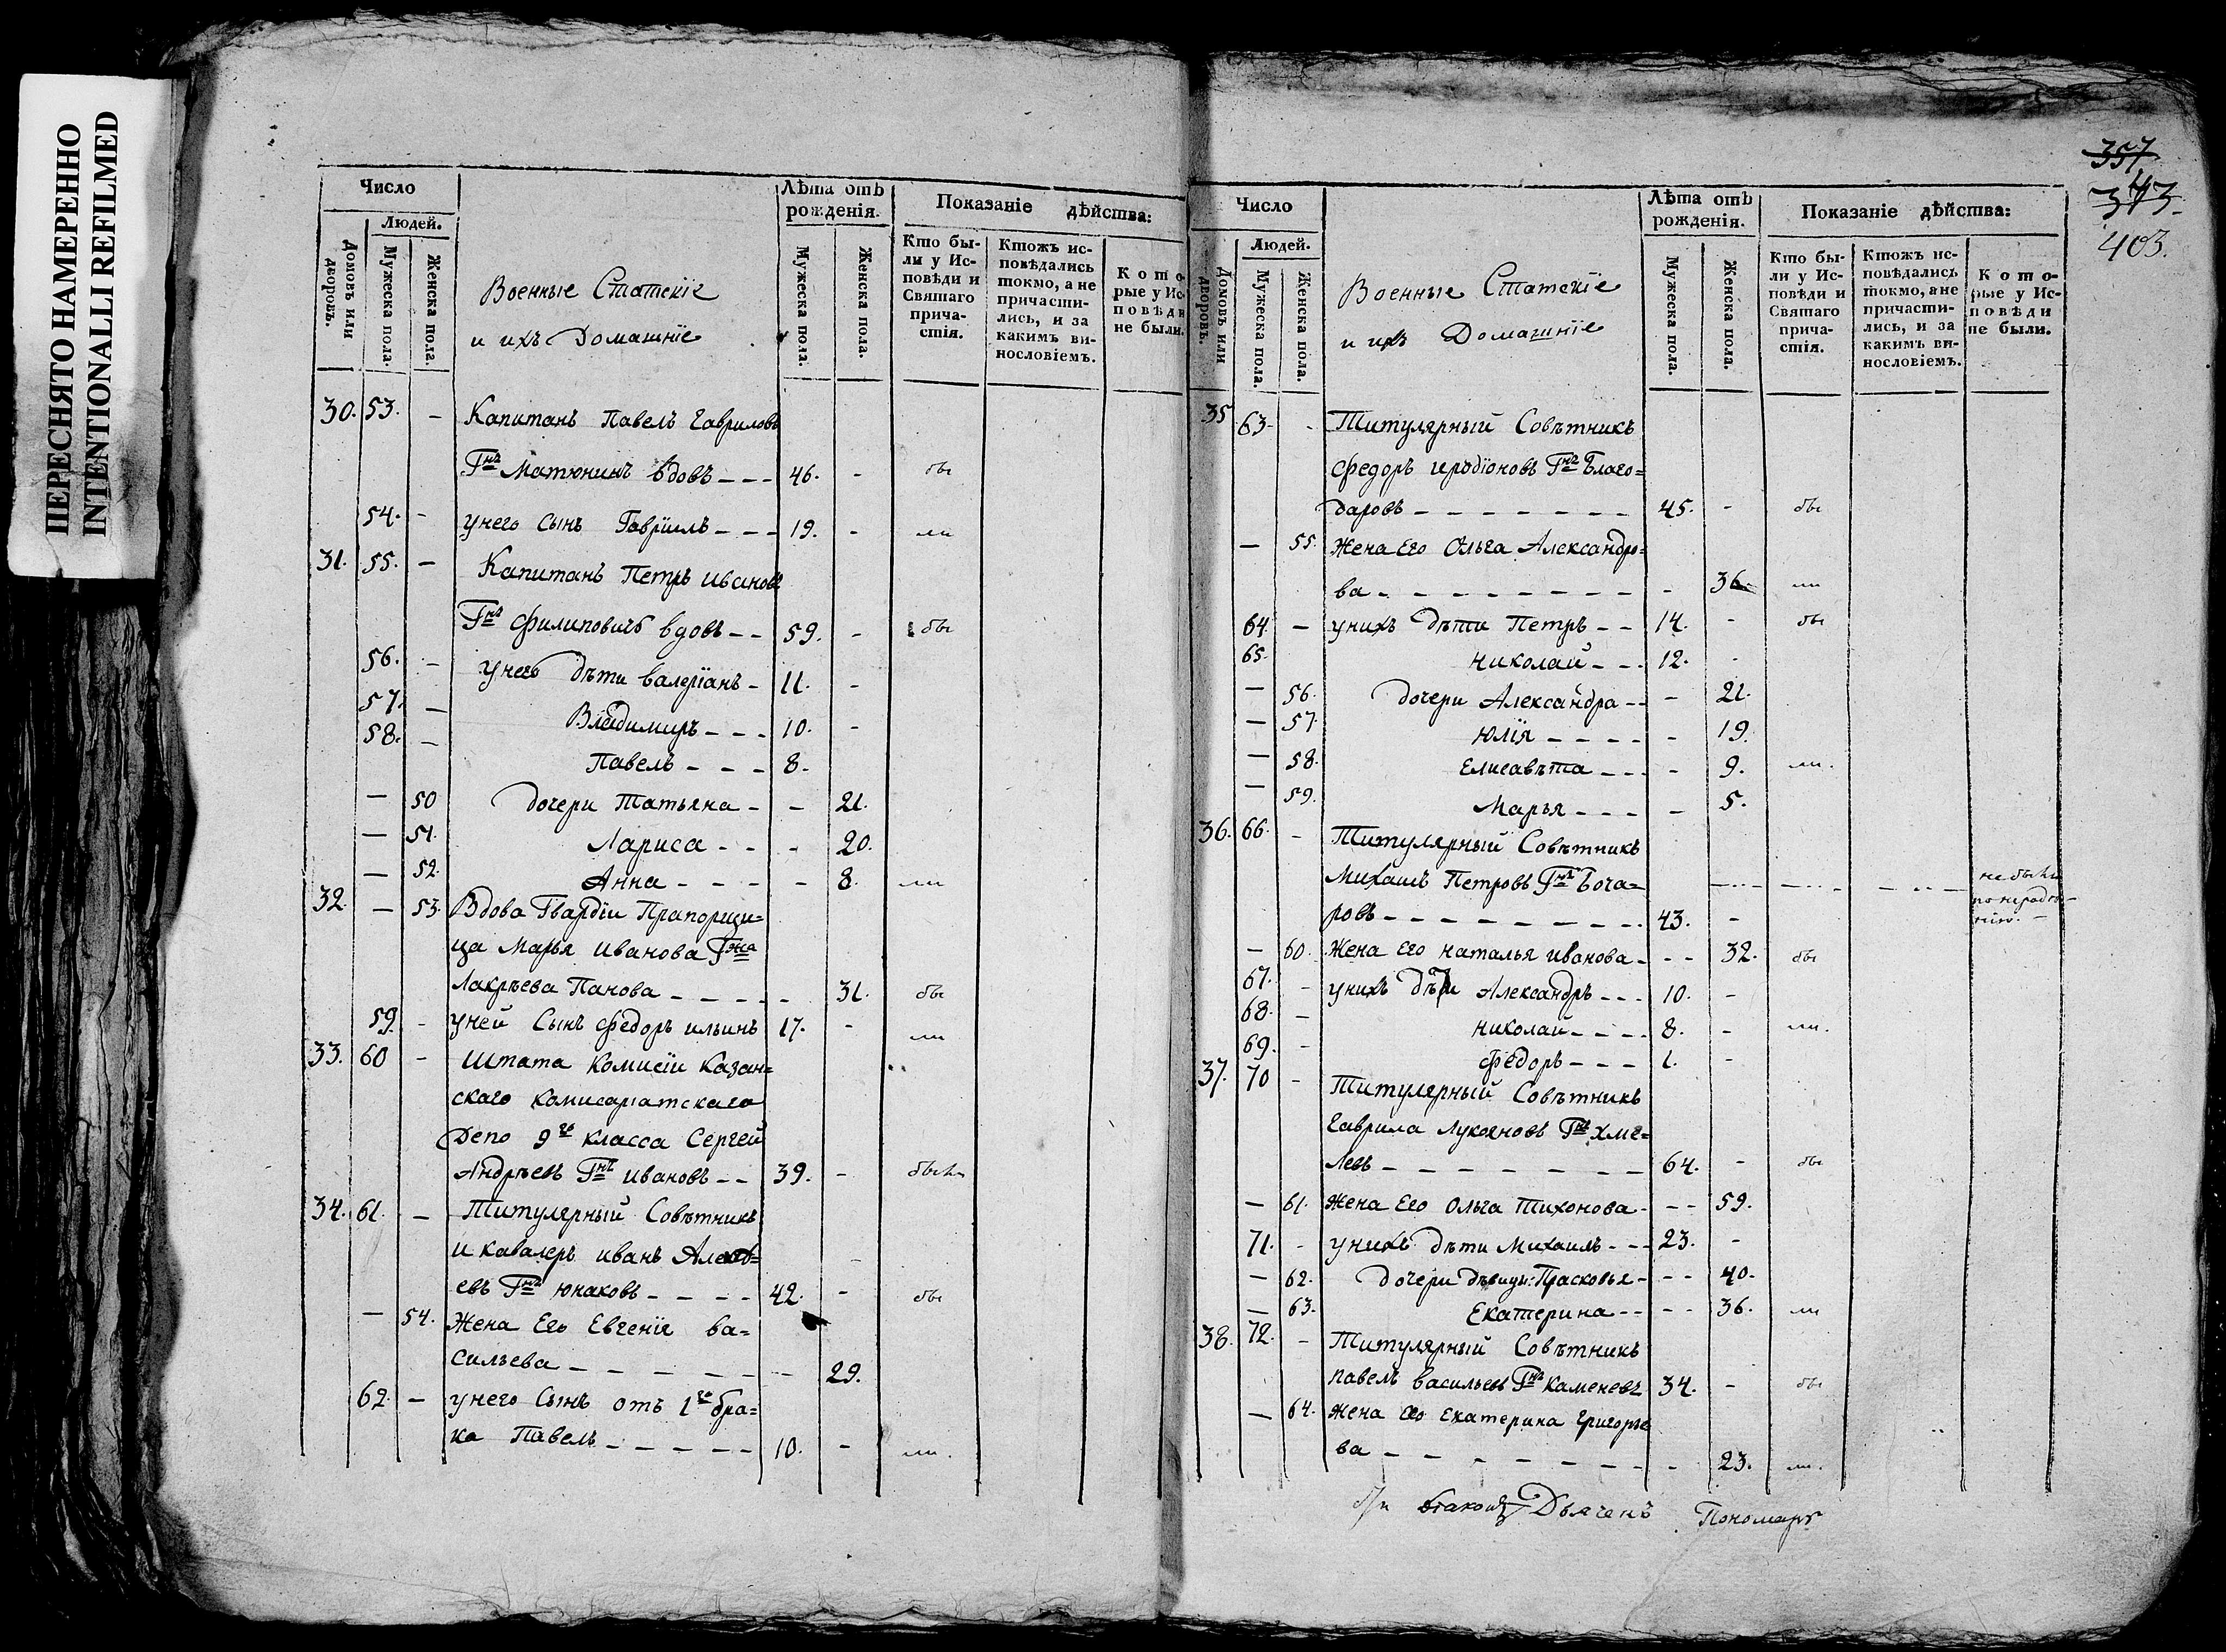 ПЕРЕСНЯТО НАМЕРЕННО
INTENTIONALLI REFILMED
Число
Людей.
Домовъ или дворовъ.
Мужеска пола.
Женска пола.
Военные Статскіе
и ихъ Домашніе
Лѣта отъ рожденія.
Мужеска пола.
Женска пола.
Показаніе дѣйства:
Кто были у Исповѣди и Святаго причастія.
Ктожъ исповѣдались токмо, а не причастились, и за какимъ винословіемъ.
Которые у Исповѣди не были.
30. 53. - Капитанъ Павелъ Гавриловъ
Гнъ Матюнинъ вдовъ - - - 46. - бы
54. - унего сынъ Гавріилъ - - - 19. - ли
31. 55. - Капитанъ Петръ Ивановъ
Гнъ Филиповичъ вдовъ - - 59. - бы
56. - унего дѣти валеріанъ - 11. -
57. - Владимиръ - - - 10. -
58. - Павелъ - - - 8.
- 50 дочери Татьяна - - 21.
- 51. Лариса - - - 20.
- 52. Анна - - - - 8. ли
32. - 53. Вдова Гвардіи Прапорщи=
ца Марья Иванова Гжа
Лакрѣева Панова - - - - - 31. бы
59. - уней Сынъ Федоръ ильинъ 17. - ли
33. 60 - Штата Комисіи Казан=
скаго комисаріатскаго
Депо 9го класса Сергей
Андрѣевъ Гнъ Ивановъ - - 39. - были
34. 61. - Титулярный Совѣтникъ
и кавалеръ иванъ
евъ Гнъ Юнаковъ - - - - 42. - бы
- 54. Жена Его Евгеніе ва=
сильева - - - - - - 29.
62. - унего Сынъ отъ 1го бра=
ка Павелъ - - - - - 10. - ли.
357
373.
403.
Число
Людей.
Домовъ или дворовъ.
Мужеска пола.
Женска пола.
Военные Статскіе
и ихъ Домашніе
Лѣта отъ рожденія.
Мужеска пола.
Женска пола.
Показаніе дѣйства:
Кто были у Исповѣди и Святаго причастія.
Ктожъ исповѣдались токмо, а не причастились, и за какимъ винословіемъ.
Которые у Исповѣди не были.
35 63. - Титулярный Совѣтникъ
Федоръ иродіоновъ Гнъ Благо=
даровъ - - - - - - - 45. - бы
- 55. Жена Его Ольга Александро=
ва - - - - - - - - - 36 ли
64. - унихъ дѣти Петръ - - 14. - бы
65. николай - - - 12. -
- 56. дочери Александра - - - 21.
- 57. Юлія - - - - - 19.
- 58. Елисавѣта - - - - 9. ли.
- 59. Марья - - - - 5.
36. 66. - Титулярный Совѣтникъ
Михаилъ Петровъ Гнъ Боча=
ровъ - - - - - - - - 43. - не были
по нерадѣ-
нію -
- 60. Жена Его наталья иванова - - - 32. бы
67. - унихъ дѣти Александръ - - - 10. -
68. - николай - - - - 8. - ли.
69. - Федоръ - - - 1. -
37. 70 - Титулярный Совѣтникъ
Гаврила Лукояновъ Гнъ Хме=
левъ - - - - - - - - 64. - бы
- 61. Жена Его Ольга Тихонова - - - 59.
71. - унихъ дѣти Михаилъ - - - 23. -
- 62. дочери дѣвицы: Прасковья - - - 40.
- 63. Екатерина - - - - 36. ли
38. 72. - Титулярный Совѣтникъ
Павелъ васильевъ Гнъ Каменевъ 34. - бы
- 64. жена Его Екатерина Григорье
ва - - - - - - - - 23. ли.
Дьяченъ Пономарь